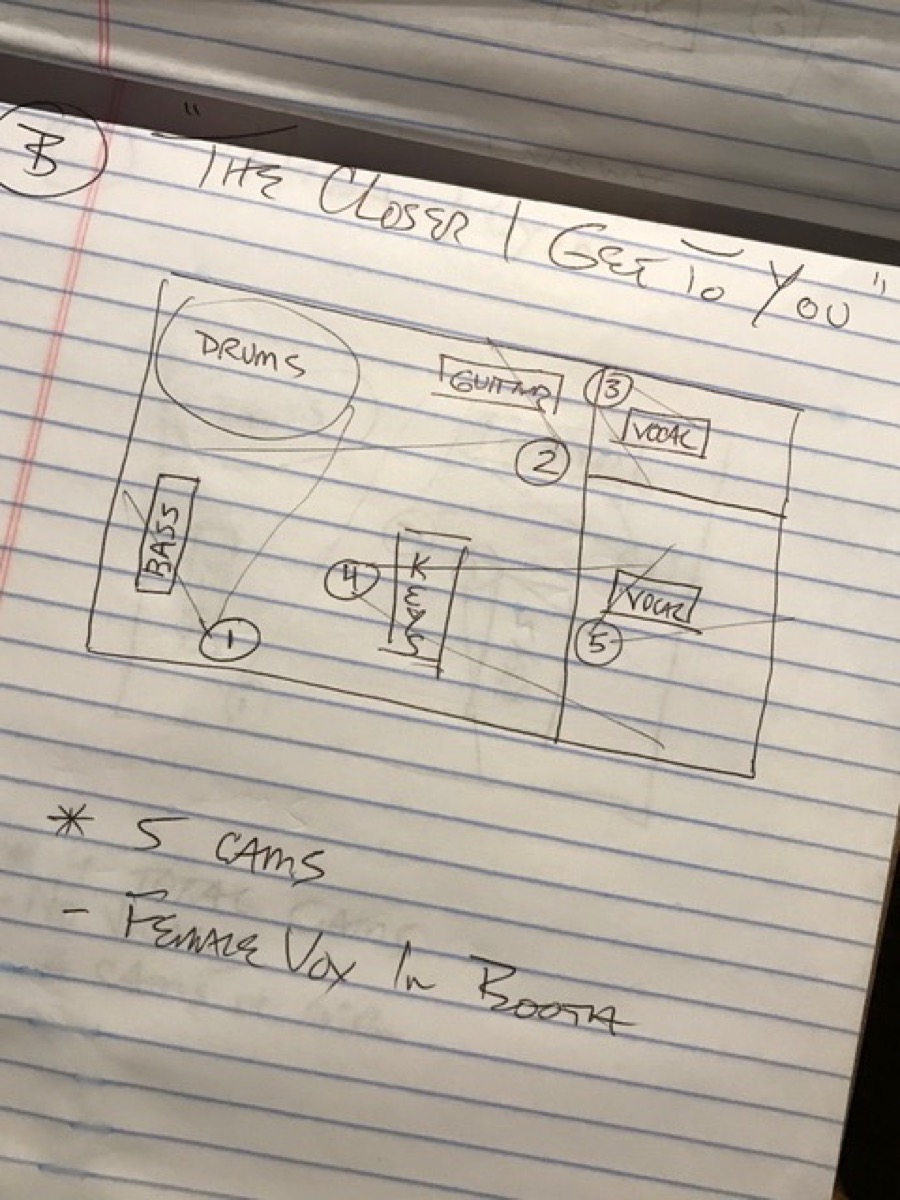 B "THE CLOSER I GET TO YOU"
DRUMS
GUITAR
3
VOCAL
2
BASS
4
KEYS
VOCAL
5
1
* 5 CAMS
- FEMALE VOX IN BOOTH